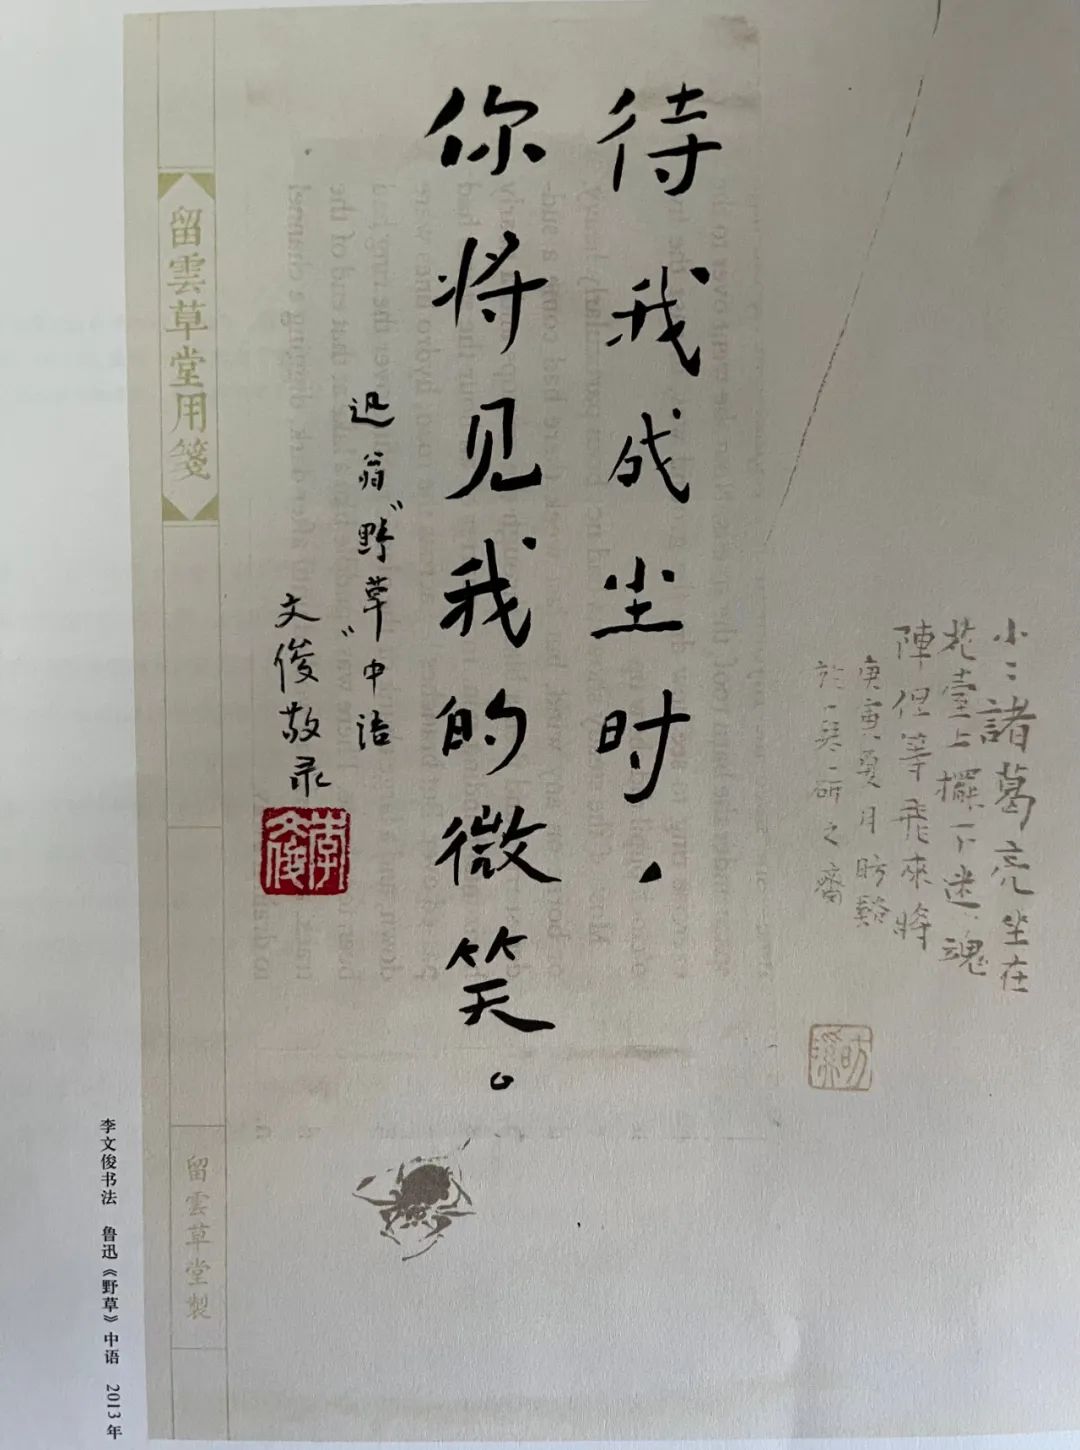 待我成尘时，
你将见我的微笑。
迅翁“野草”中语
文俊敬录
李文俊
小小諸葛亮坐在
花臺上擺下迷魂
陣但等飛來將
庚寅夏月昉谿
留雲草堂用箋
留雲草堂製
李文俊书法 鲁迅《野草》中语 2013年